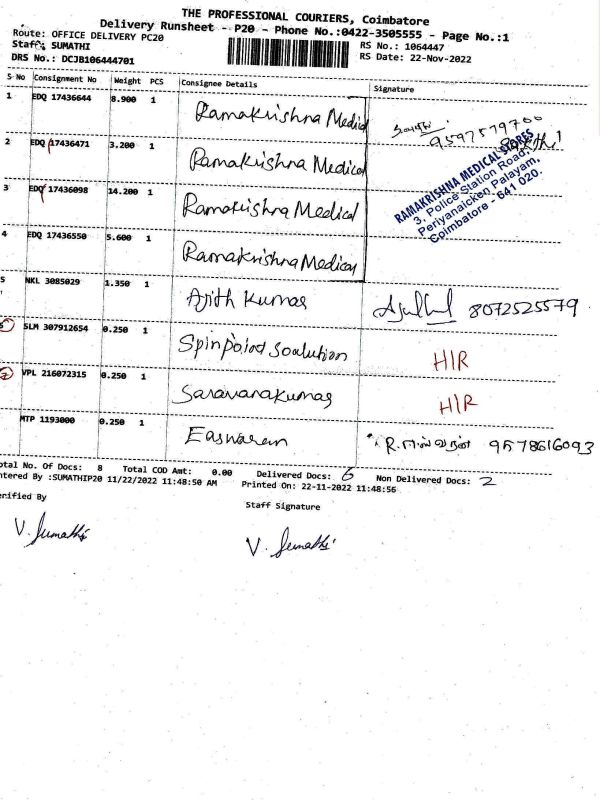 THE PROFESSIONAL COURIERS, Coimbatore
Delivery Runsheet - P20 - Phone No.:0422-3505555 - Page No.:1
Route: OFFICE DELIVERY PC20
RS No.: 1064447
Staff: SUMATHI
RS Date: 22-Nov-2022
DRS No.: DCJB106444701
S No Consignment No Weight PCS Consignee Details Signature
1 EDQ 17436644 8.900 1 Ramakrishna Medical
9597579700
2 EDQ 17436471 3.200 1 Ramakrishna Medical
RAMAKRISHNA MEDICAL STORES
3, Police Station Road,
Periyanaicken Palayam,
Coimbatore - 641 020.
3 EDQ 17436098 14.200 1 Ramakrishna Medical
4 EDQ 17436550 5.600 1 Ramakrishna Medical
5 NKL 3085029 1.350 1 Ajith Kumar 8072525579
6 SLM 307912654 0.250 1 Spinpoint Soalution HIR
7 VPL 216072315 0.250 1 Saravanakumar HIR
MTP 1193000 0.250 1 Easwaran R. ஈஸ்வரன் 9578616093
otal No. Of Docs: 8 Total COD Amt: 0.00 Delivered Docs: 6 Non Delivered Docs: 2
ntered By :SUMATHIP20 11/22/2022 11:48:50 AM Printed On: 22-11-2022 11:48:56
erified By Staff Signature
V. Sumathi V. Sumathi